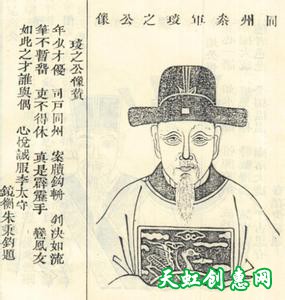 同州叅軍琰之公像
琰之公像贊
年少才優 司戶同州 案牘鉤斬 剖決如流
筆不暫畱 吏不得休 真是霹靂手
如此之才誰與偶 心悅誠服李太守
朱秉鈞題
天虹创意网